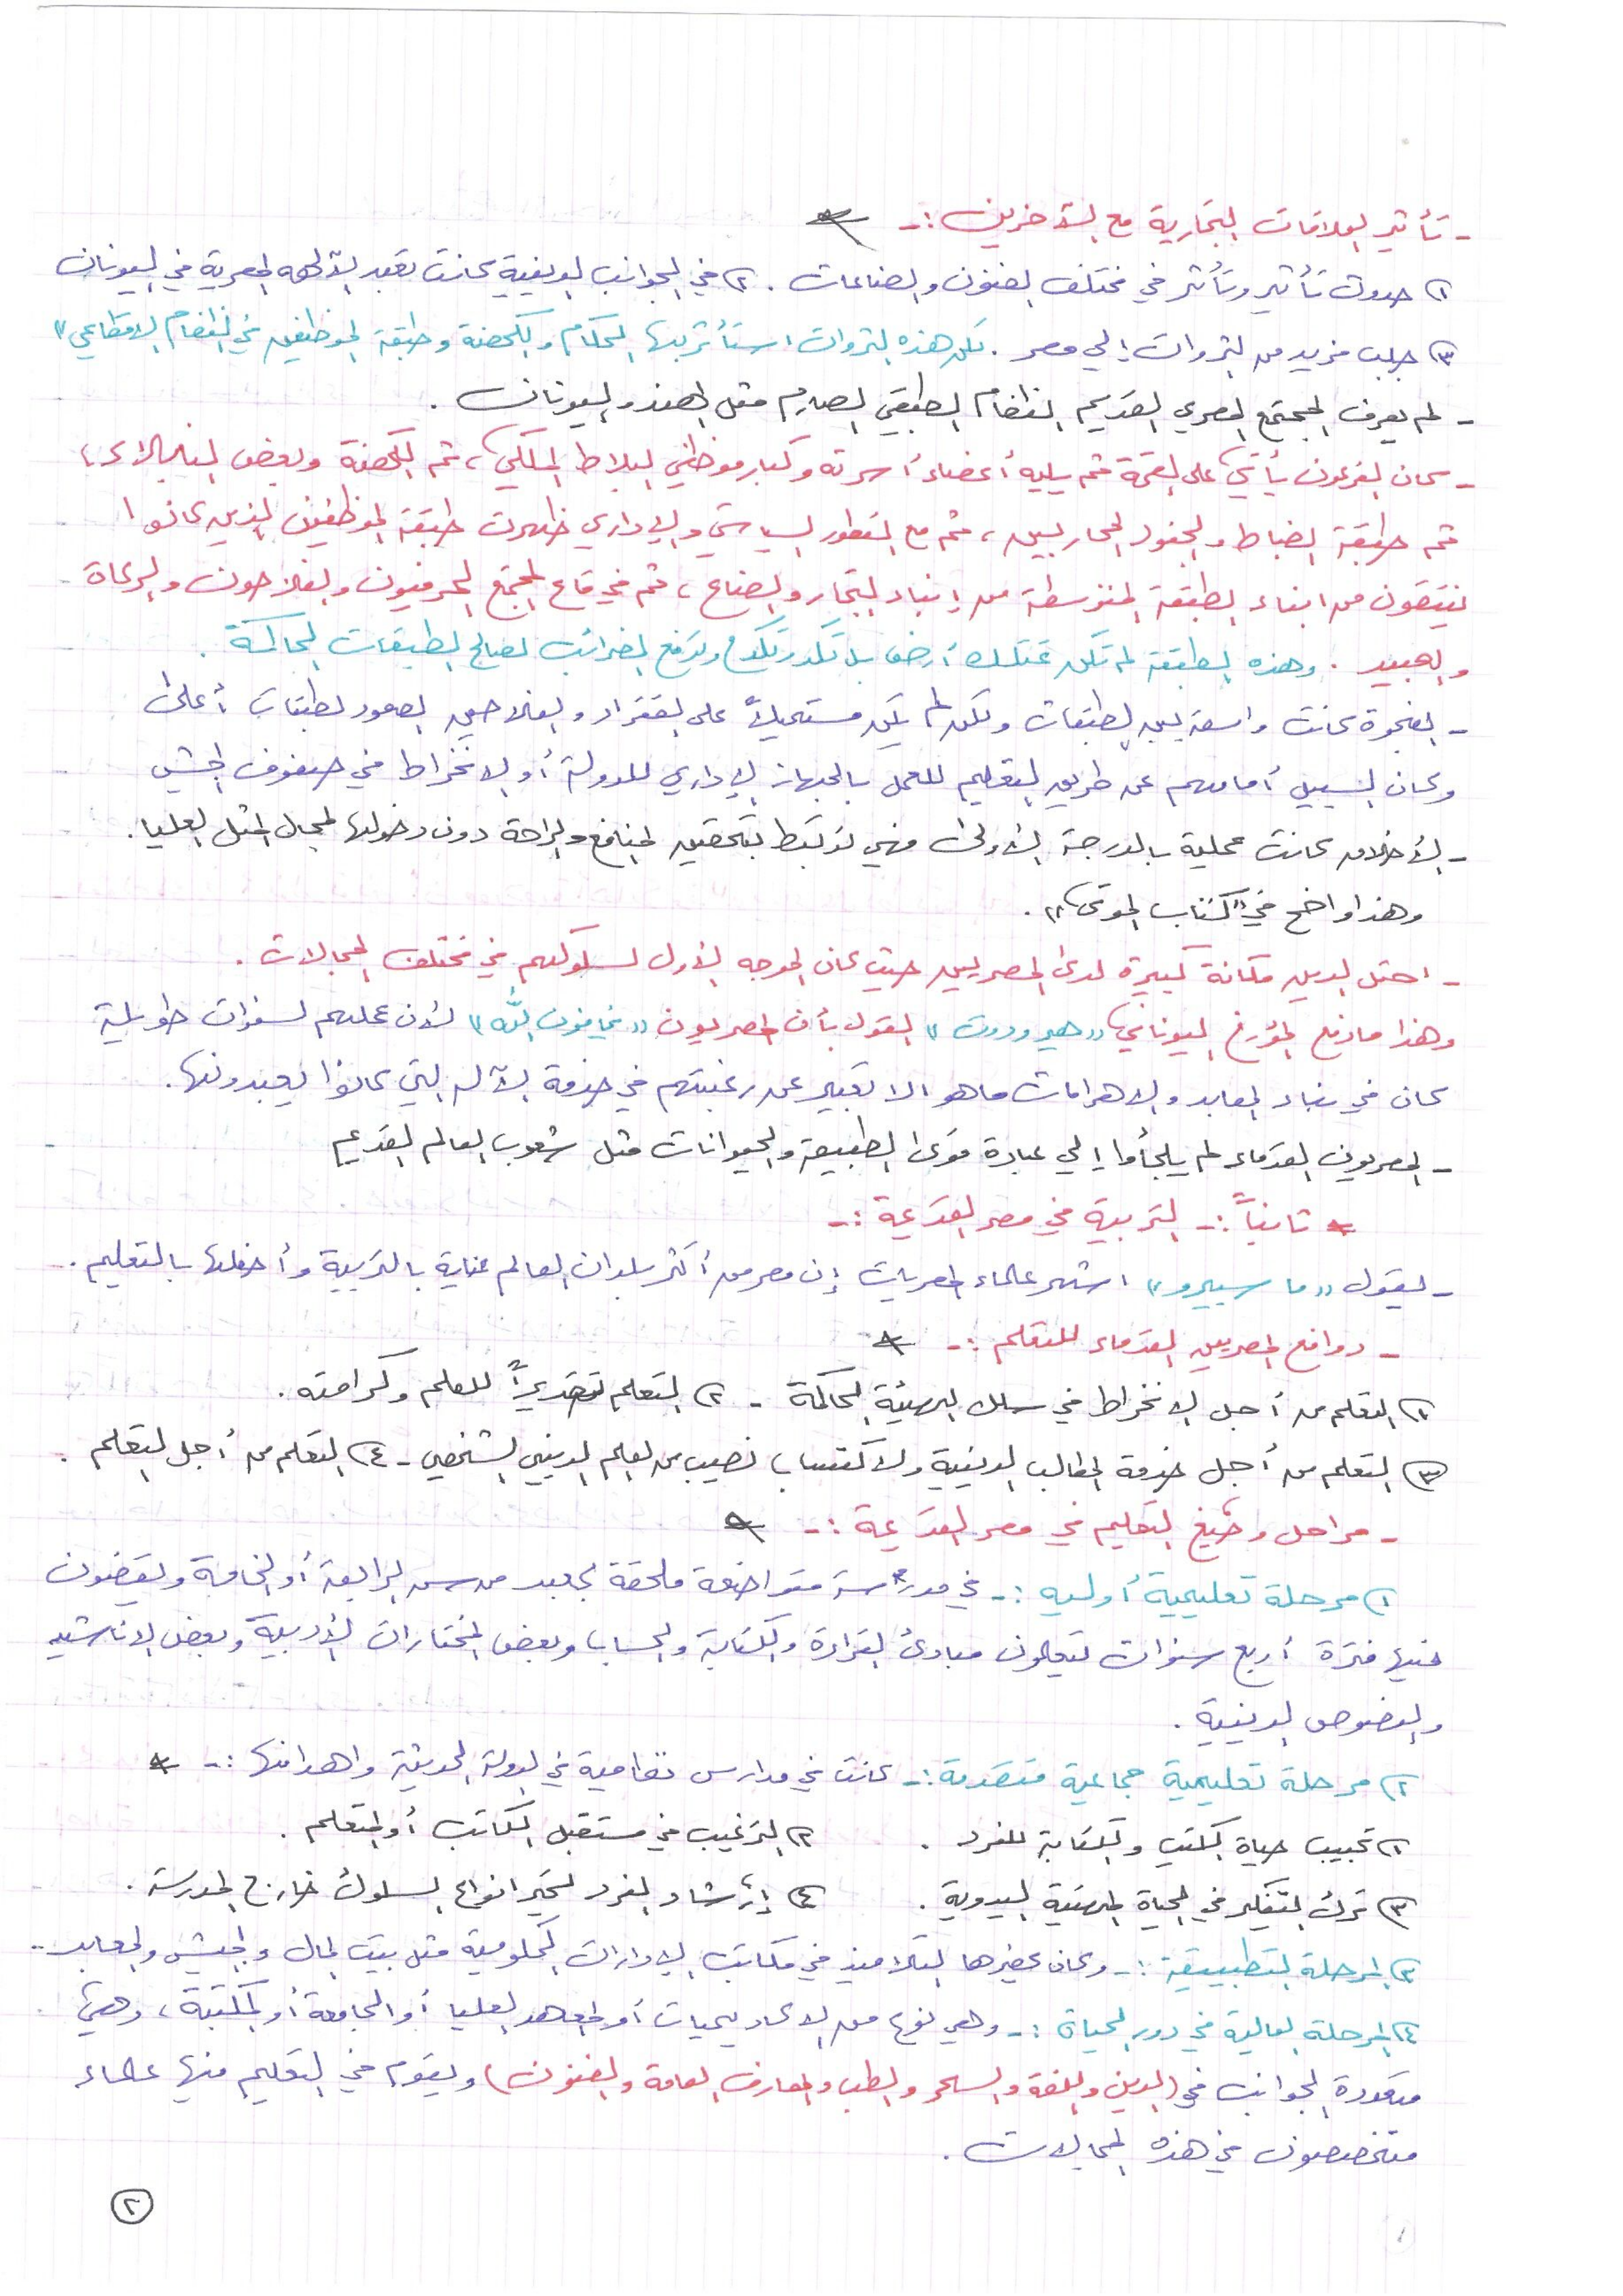 - تأثير العلاقات التجارية مع الآخرين :-
١) حدوث تأثير وتأثر في مختلف الفنون والصناعات . ٢) في الجوانب الدينية كانت تعبد الآلهه المصرية في اليونان
٣) جلب مزيد من الثروات إلى مصر . لكن هذه الثروات استأثر بها الحكام والكهنة وطبقة الموظفين في النظام الاقطاعي"
- لم يعرف المجتمع المصري القديم النظام الطبقي الصارم مثل الهند واليونان .
- كان الفرعون يأتي على القمة ثم يليه أعضاء أسرته وكبار موظفي البلاط الملكي ، ثم الكهنة وبعض النبلاء ،
ثم طبقة الضباط والجنود المحاربين ، ثم مع التطور السياسي والإداري ظهرت طبقة الموظفين الذين كانوا
ينتقون من ابناء الطبقة المتوسطة من ابناء التجار والصناع ، ثم في قاع المجتمع الحرفيون والفلاحون والرعاة
والعبيد . وهذه الطبقة لم تكن تمتلك أرض بل تكد وتكدح وتدفع الضرائب لصالح الطبقات الحاكمة .
- الفجوة كانت واسعة بين الطبقات ولكن لم يكن مستحيلاً على الفقراء والفلاحين الصعود لطبقات أعلى
وكان السبيل أمامهم عن طريق التعليم للعمل بالجهاز الإداري للدولة أو الانخراط في صفوف الجيش
- الأخلاق كانت عملية بالدرجة الأولى فهي ترتبط بتحقيق المنافع والراحة دون دخولها لمجال المثل العليا .
وهذا واضح في "كتاب الموتى" .
- احتل الدين مكانة كبيرة لدى المصريين حيث كان الموجه الأول لسلوكهم في مختلف المجالات .
وهذا ما دفع المؤرخ اليوناني "هيرودوت" لقول بأن المصريون "يخافون الله" لأن عملهم لسنوات طويلة
كان في بناء المعابد والاهرامات ما هو الا تعبير عن رغبتهم في خدمة الآله التي كانوا يعبدونها .
- المصريون القدماء لم يلجأوا إلى عبادة قوى الطبيعة والحيوانات مثل شعوب العالم القديم
* ثانياً :- التربية في مصر القديمة :-
- يقول "ما سبيرو" اشهر علماء المصريات إن مصر من أكثر بلدان العالم عناية بالتربية وأحفلها بالتعليم .
- دوافع المصريين القدماء للتعلم :-
١) التعلم من أجل الانخراط في سلك الهيئة الحاكمة - ٢) التعلم تقديراً للعلم وكرامته .
٣) التعلم من أجل خدمة المطالب الدينية ولاكتساب نصيب من العلم الديني الشخصي - ٤) التعلم من أجل التعلم .
- مراحل وصيغ التعليم في مصر القديمة :-
١) مرحلة تعليمية أوليه :- في مدرسة متواضعة ملحقة بمعبد من سن الرابعة أو الخامسة ويقضون
فيها فترة أربع سنوات يتعلمون مبادئ القراءة والكتابة والحساب وبعض المختارات الأدبية وبعض الاناشيد
والنصوص الدينية .
٢) مرحلة تعليمية جماعية متقدمة :- كانت في مدارس نظامية في الدولة الحديثة واهدافها :-
١) تحبيب حياة الكتب والكتابة للفرد . ٢) الترغيب في مستقبل الكاتب أو المتعلم .
٣) ترك التفكير في الحياة المهنية اليدوية . ٤) إرشاد الفرد لخير انواع السلوك خارج المدرسة .
٣) المرحلة التطبيقية :- وكان يحضرها التلاميذ في مكاتب الإدارات الحكومية مثل بيت المال والجيش والمعابد ..
٤) المرحلة العالية في دور الحياة :- وهي نوع من الاكاديميات أو المعاهد العليا أو الجامعة أو المكتبة ، وهي
متعددة الجوانب في (الدين واللغة والسحر والطب والمعارف العامة والفنون) ويقوم في التعليم فيها علماء
متخصصون في هذه المجالات .
٢